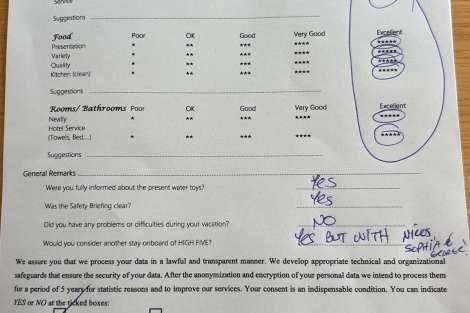 Service
Suggestions
Food Poor OK Good Very Good Excellent
Presentation * ** *** **** *****
Variety * ** *** **** *****
Quality * ** *** **** *****
Kitchen (clean) * ** *** **** *****
Suggestions
Rooms/ Bathrooms Poor OK Good Very Good Excellent
Neatly * ** *** **** *****
Hotel Service
(Towels, Bed...) * ** *** **** *****
Suggestions
General Remarks
Were you fully informed about the present water toys? Yes
Was the Safety Briefing clear? Yes
Did you have any problems or difficulties during your vacation? NO
Would you consider another stay onboard of HIGH FIVE? Yes BUT WITH NICOS,
SOPHIA &
GEORGE!
We assure you that we process your data in a lawful and transparent manner. We develop appropriate technical and organizational
safeguards that ensure the security of your data. After the anonymization and encryption of your personal data we intend to process them
for a period of 5 years for statistic reasons and to improve our services. Your consent is an indispensable condition. You can indicate
YES or NO at the ticked boxes: